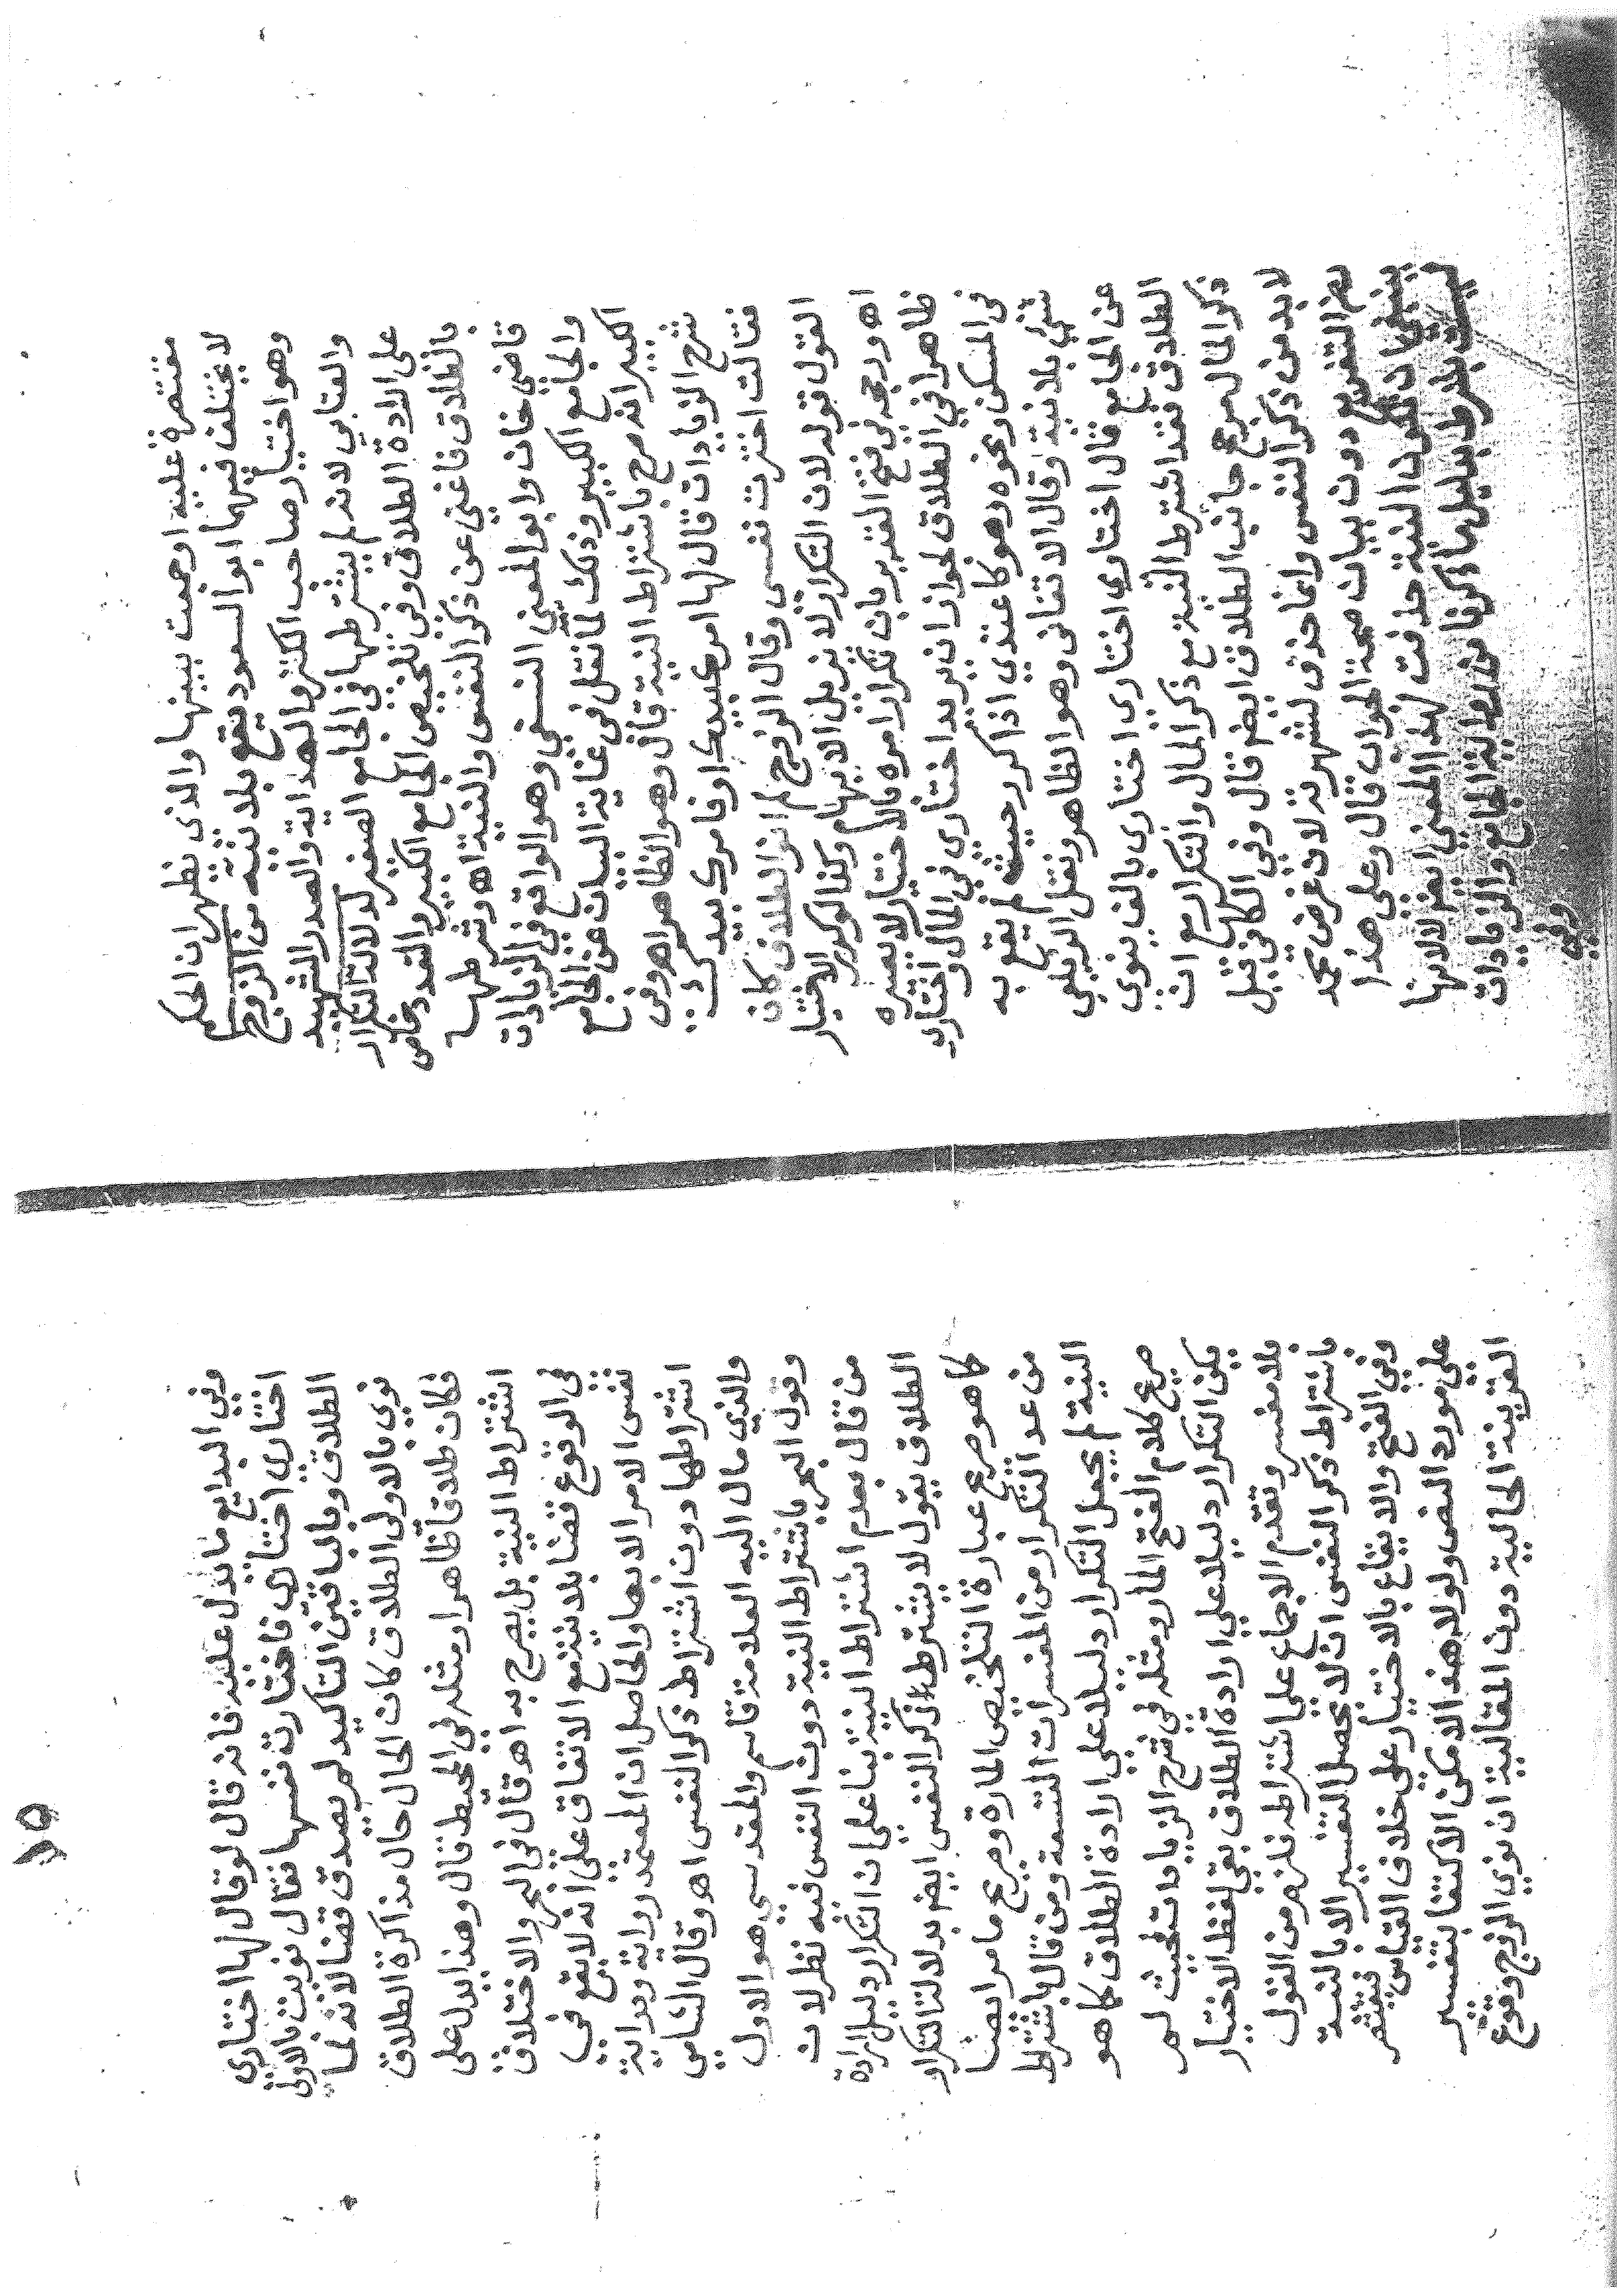 مقتصرة عليه اوجمعت بينها والذي يظهر ان الحكم
لا يختلف فيهما ابو السعود يقع بلا نية من الزوج
وهو اختيار صاحب الكنز والهداية والصدر الشهيد
والعتابي لانه لم يشترطها في الجامع الصغير لدلالة التكرار
على ارادة الطلاق وفي تلخيص الجامع الكبير والتعدد خاص
بالطلاق فاغنى عن ذكر النفس والنية اه وشرطها
قاضي خان وابو المعين النسفي وهو الواقع في الزيادات
والجامع الكبير وذلك لما نقل في غاية البيان عن الجامع
الكبير انه صرح باشتراط النية قال وهو الظاهر اه وفي
شرح الزيادات قال لها امرك بيدك اوفامرك بيدك
فقالت اخترت نفسي وقال الزوج لم انو الطلاق كان
القول قوله لان التكرار لا يزيل الابهام وكذا لو كرر الاختيار
اه ورجحه في فتح القدير بان تكرار امره بالاختيار لا يصيره
ظاهرا في الطلاق لجواز ان يريد اختاري في المال واختاري
في المسكن ونحوه وهو كما عندي اذا كرر حيث لم يقع به
شئ بلا نية وقال الاتقاني وهو الظاهر ونقل الزيلعي
عن الجامع قال اختاري اختاري اختاري بالف ينوي
الطلاق فقد اشترط النية مع ذكر المال والتكرار مع ان
ذكر المال مرجح جانب الطلاق ايضا قال وفي الكافي قيل
لا بد من ذكر النفس وانما حذف لشهرته لان غرض محمد
رحمه التفريع دون بيان صحة الجواب قال وعلى هذا
ينبغي ان تكون النية حذفت لهذا المعنى ايضا لا لانها
ليست بشرط بدليل ما ذكرنا من رواية الجامع والزيادات
وفي
١٥
وفي البدايع ما يدل عليه فانه قال لو قال لها اختاري
اختاري اختاري فاختارت نفسها فقال نويت بالاولى
الطلاق وبالباقين التاكيد لم يصدق قضا لانه لما
نوى بالاولى الطلاق كان الحال حال مذاكرة الطلاق
فكان طلاقا ظاهرا ومثله في المحيط قال وهذا يدل على
اشتراط النية بل يصرح به اه قال في البحر والاختلاف
في الوقوع قضا بلا نية مع الاتفاق على انه لا يقع في
نفس الامر الا بها والحاصل ان المعتمد رواية ودراية
اشتراطها دون اشتراط ذكر النفس اه وقال الشامي
والذي مال اليه العلامة قاسم والمقدسي هو الاول
وقول البحر باشتراط النية دون النفس فيه نظر لان
من قال بعدم اشتراط النية بنا على ان التكرار دليل ارادة
الطلاق يقول لا يشترط ذكر النفس ايضا بدلالة التكرار
كما هو صريح عبارة التلخيص المارة وصريح ما مر ايضا
من عد التكرار من المفسرات التسعة ومن قال باشتراط
النية لم يجعل التكرار دليلا على ارادة الطلاق كما هو
صريح كلام الفتح المار ومثله في شرح الزيادات فحيث لم
يكن التكرار دليلا على ارادة الطلاق بقي لفظ الاختيار
بلا مفسر وتقدم الاجماع على اشتراطه فلزم من القول
باشتراط ذكر النفس ان لا يحصل التفسير الا بالنية
وفي الفتح والايقاع بالاختيار على خلاف القياس فيقتصر
على مورد النص ولولا هذا لامكن الاكتفا بتفسير
القرينة الحالية دون المقالية ان نوى الزوج وقوع